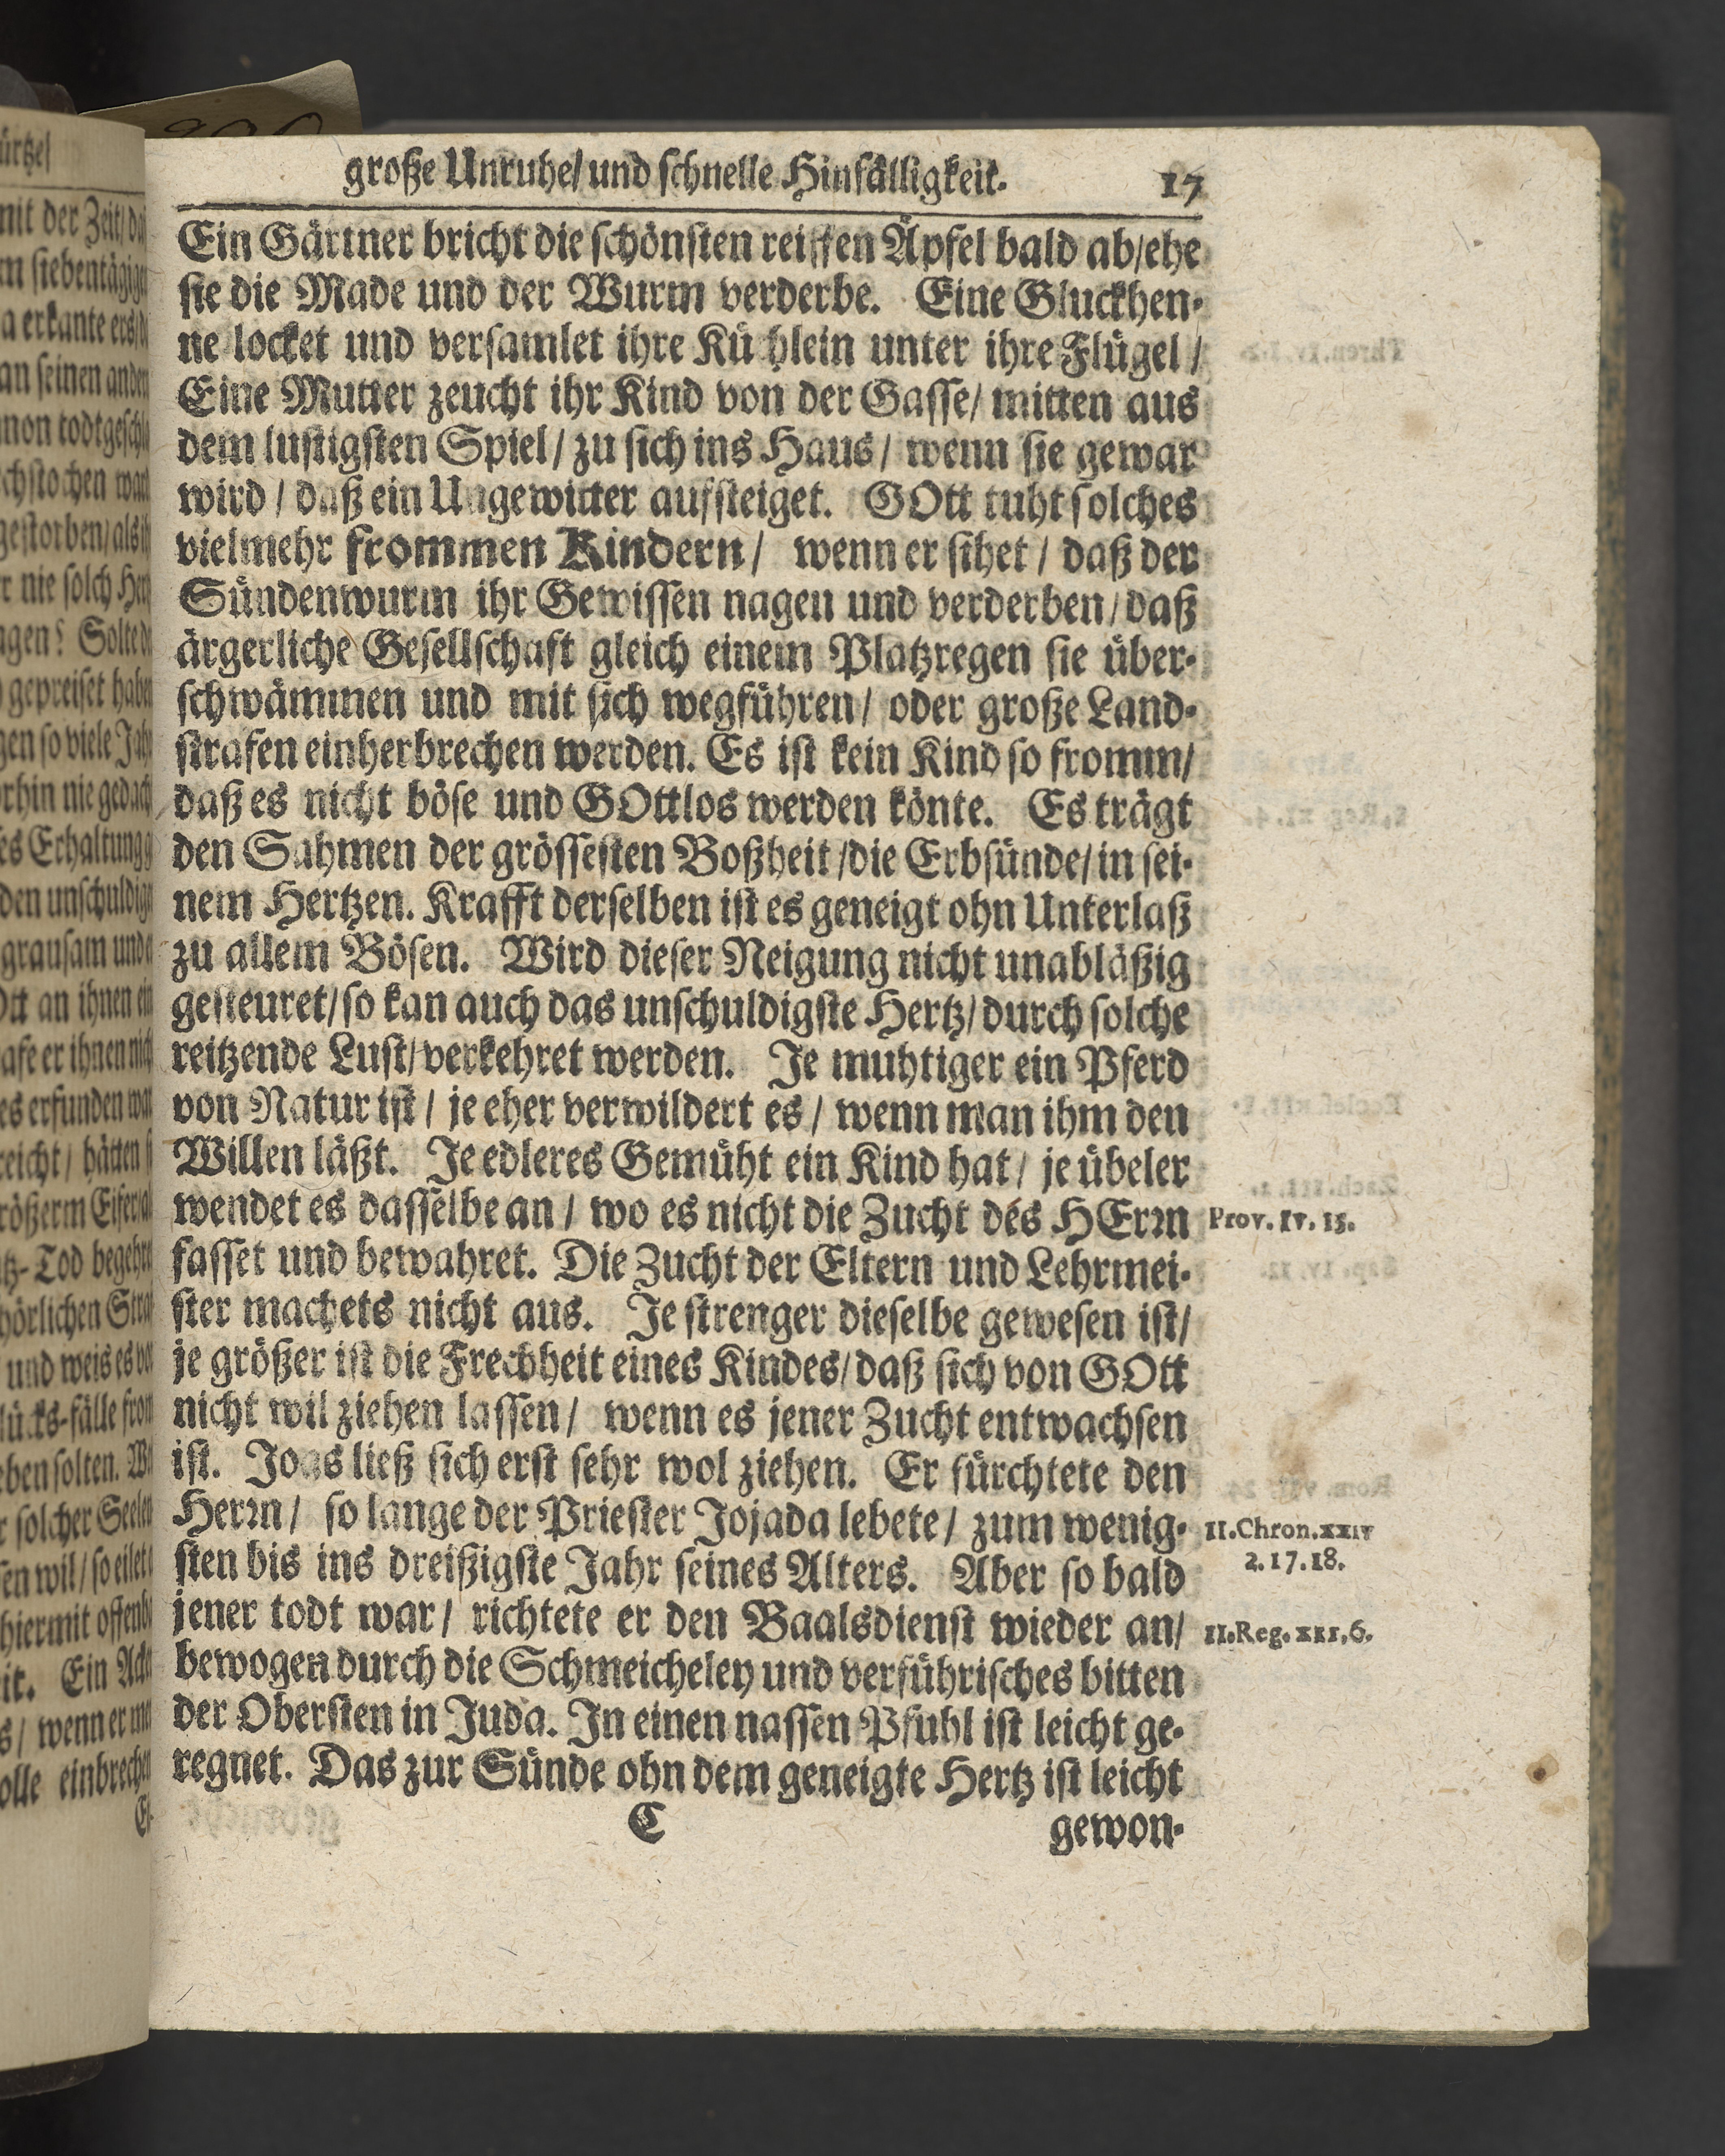 große Unruhe/ und schnelle Hinfälligkeit. 17
Ein Gärtner bricht die schönsten reiffen Äpfel bald ab/ehe
sie die Made und der Wurm verderbe. Eine Gluckhen-
ne locket und versamlet ihre Küchlein unter ihre Flügel /
Eine Mutter zeucht ihr Kind von der Gasse/ mitten aus
dem lustigsten Spiel/ zu sich ins Haus/ wenn sie gewar
wird / daß ein Ungewitter aufsteiget. GOtt tuht solches
vielmehr frommen Kindern/ wenn er sihet / daß der
Sündenwurm ihr Gewissen nagen und verderben/daß
ärgerliche Gesellschaft gleich einem Platzregen sie über-
schwämmen und mit sich wegführen/ oder große Land-
strafen einherbrechen werden. Es ist kein Kind so fromm/
daß es nicht böse und GOttlos werden könte. Es trägt
den Sahmen der grössesten Boßheit/die Erbsünde/in sei-
nem Hertzen. Krafft derselben ist es geneigt ohn Unterlaß
zu allem Bösen. Wird dieser Neigung nicht unabläßig
gesteuret/so kan auch das unschuldigste Hertz/durch solche
reitzende Lust/verkehret werden. Je muhtiger ein Pferd
von Natur ist / je eher verwildert es / wenn man ihm den
Willen läßt. Je edleres Gemüht ein Kind hat / je übeler
wendet es dasselbe an / wo es nicht die Zucht des HErrn
Prov. IV. 13.
fasset und bewahret. Die Zucht der Eltern und Lehrmei-
ster machets nicht aus. Je strenger dieselbe gewesen ist/
je größer ist die Frechheit eines Kindes/daß sich von GOtt
nicht wil ziehen lassen/ wenn es jener Zucht entwachsen
ist. Joas ließ sich erst sehr wol ziehen. Er fürchtete den
Herrn/ so lange der Priester Jojada lebete/ zum wenig-
II.Chron.XXIV
sten bis ins dreißigste Jahr seines Alters. Aber so bald
2.17.18.
jener todt war/ richtete er den Baalsdienst wieder an/
II.Reg. XII,6.
bewogen durch die Schmeicheley und verführisches bitten
der Obersten in Juda. In einen nassen Pfuhl ist leicht ge-
regnet. Das zur Sünde ohn dem geneigte Hertz ist leicht
C gewon-